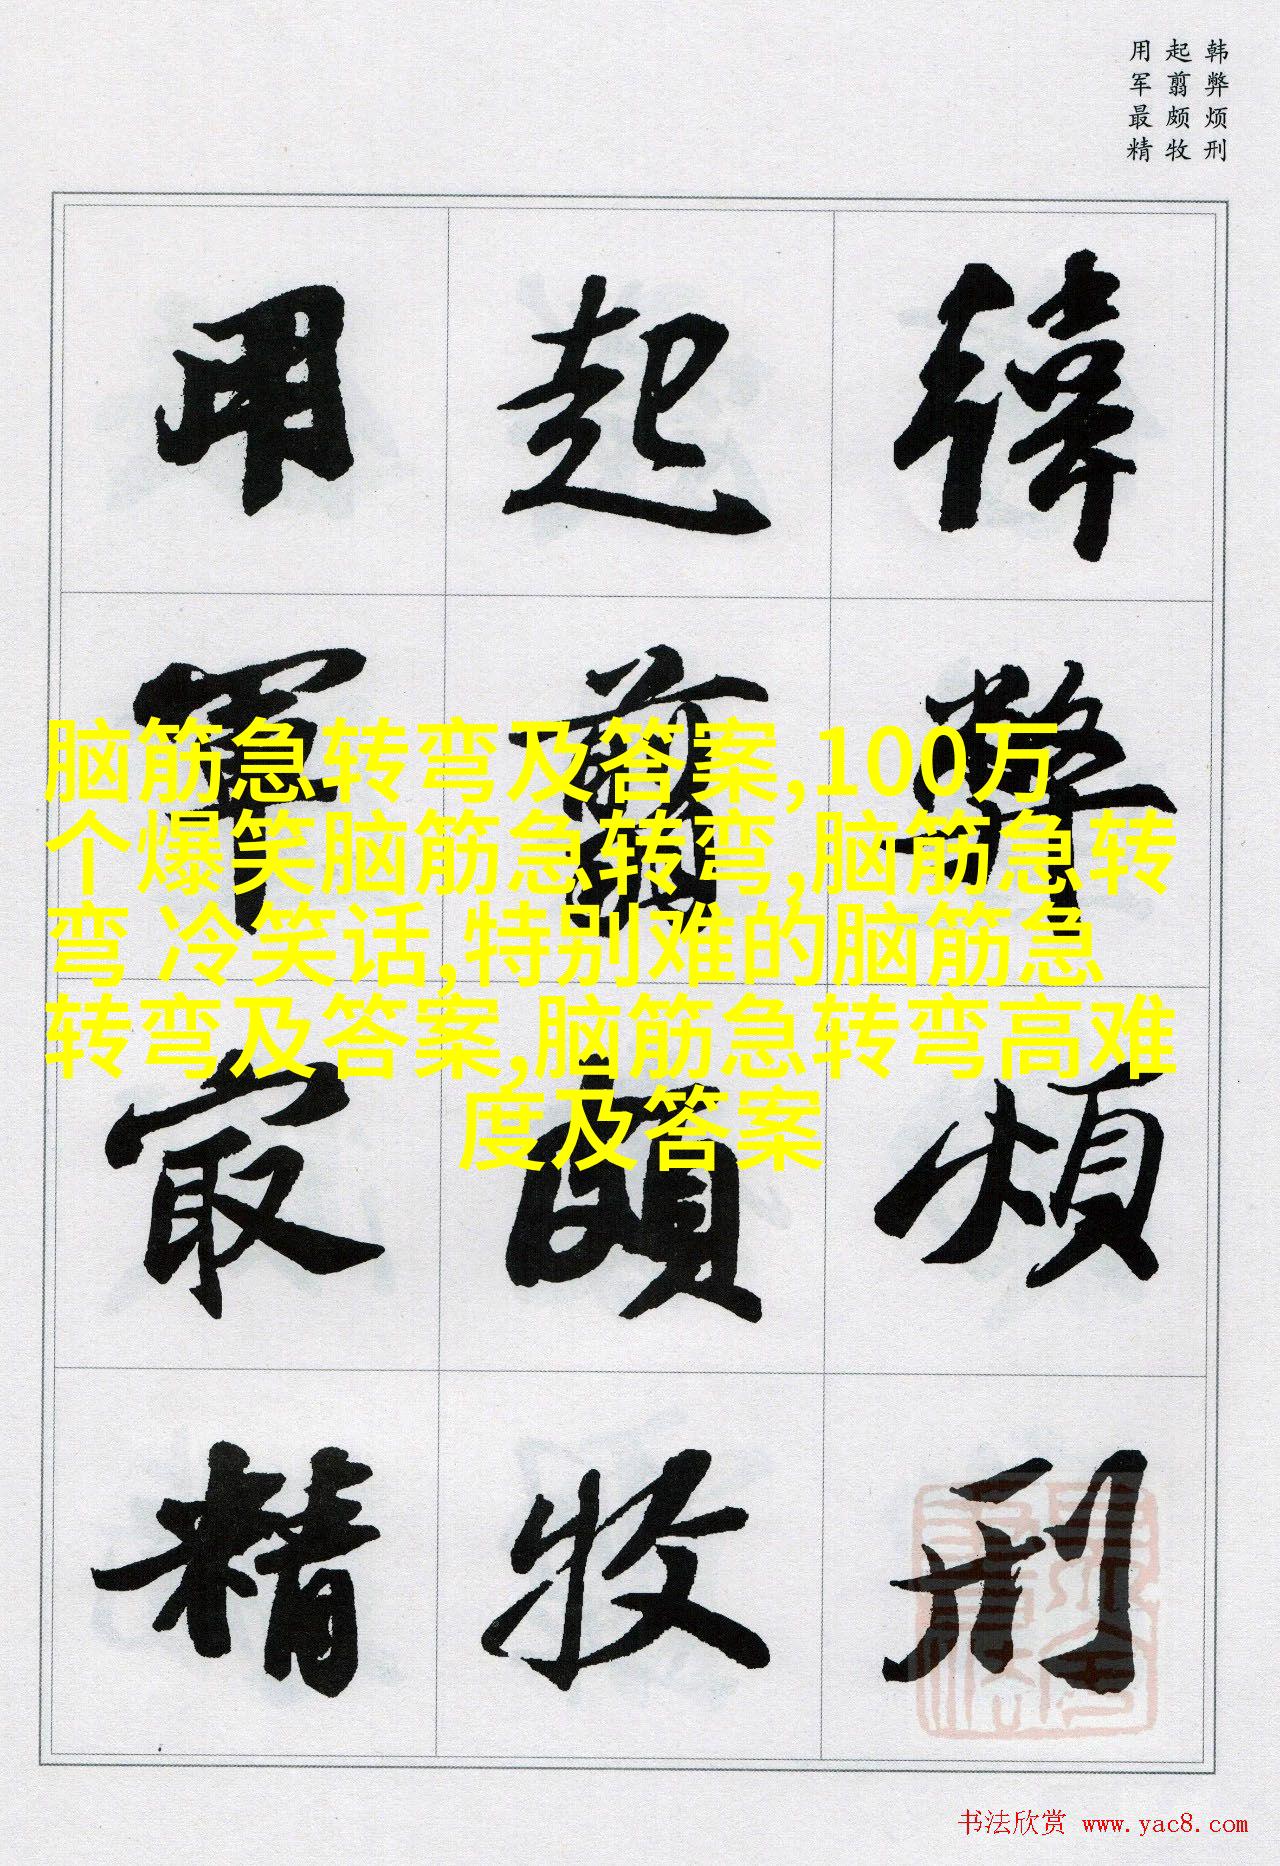 韩弊烦刑
起翦颇牧
用军最精
韓弊煩刑
起翦頗牧
用軍最精
脑筋急转弯及答案,100万
个爆笑脑筋急转弯,脑筋急转
弯 冷笑话,特别难的脑筋急
转弯及答案,脑筋急转弯高难
度及答案
书法欣赏 www.yac8.com